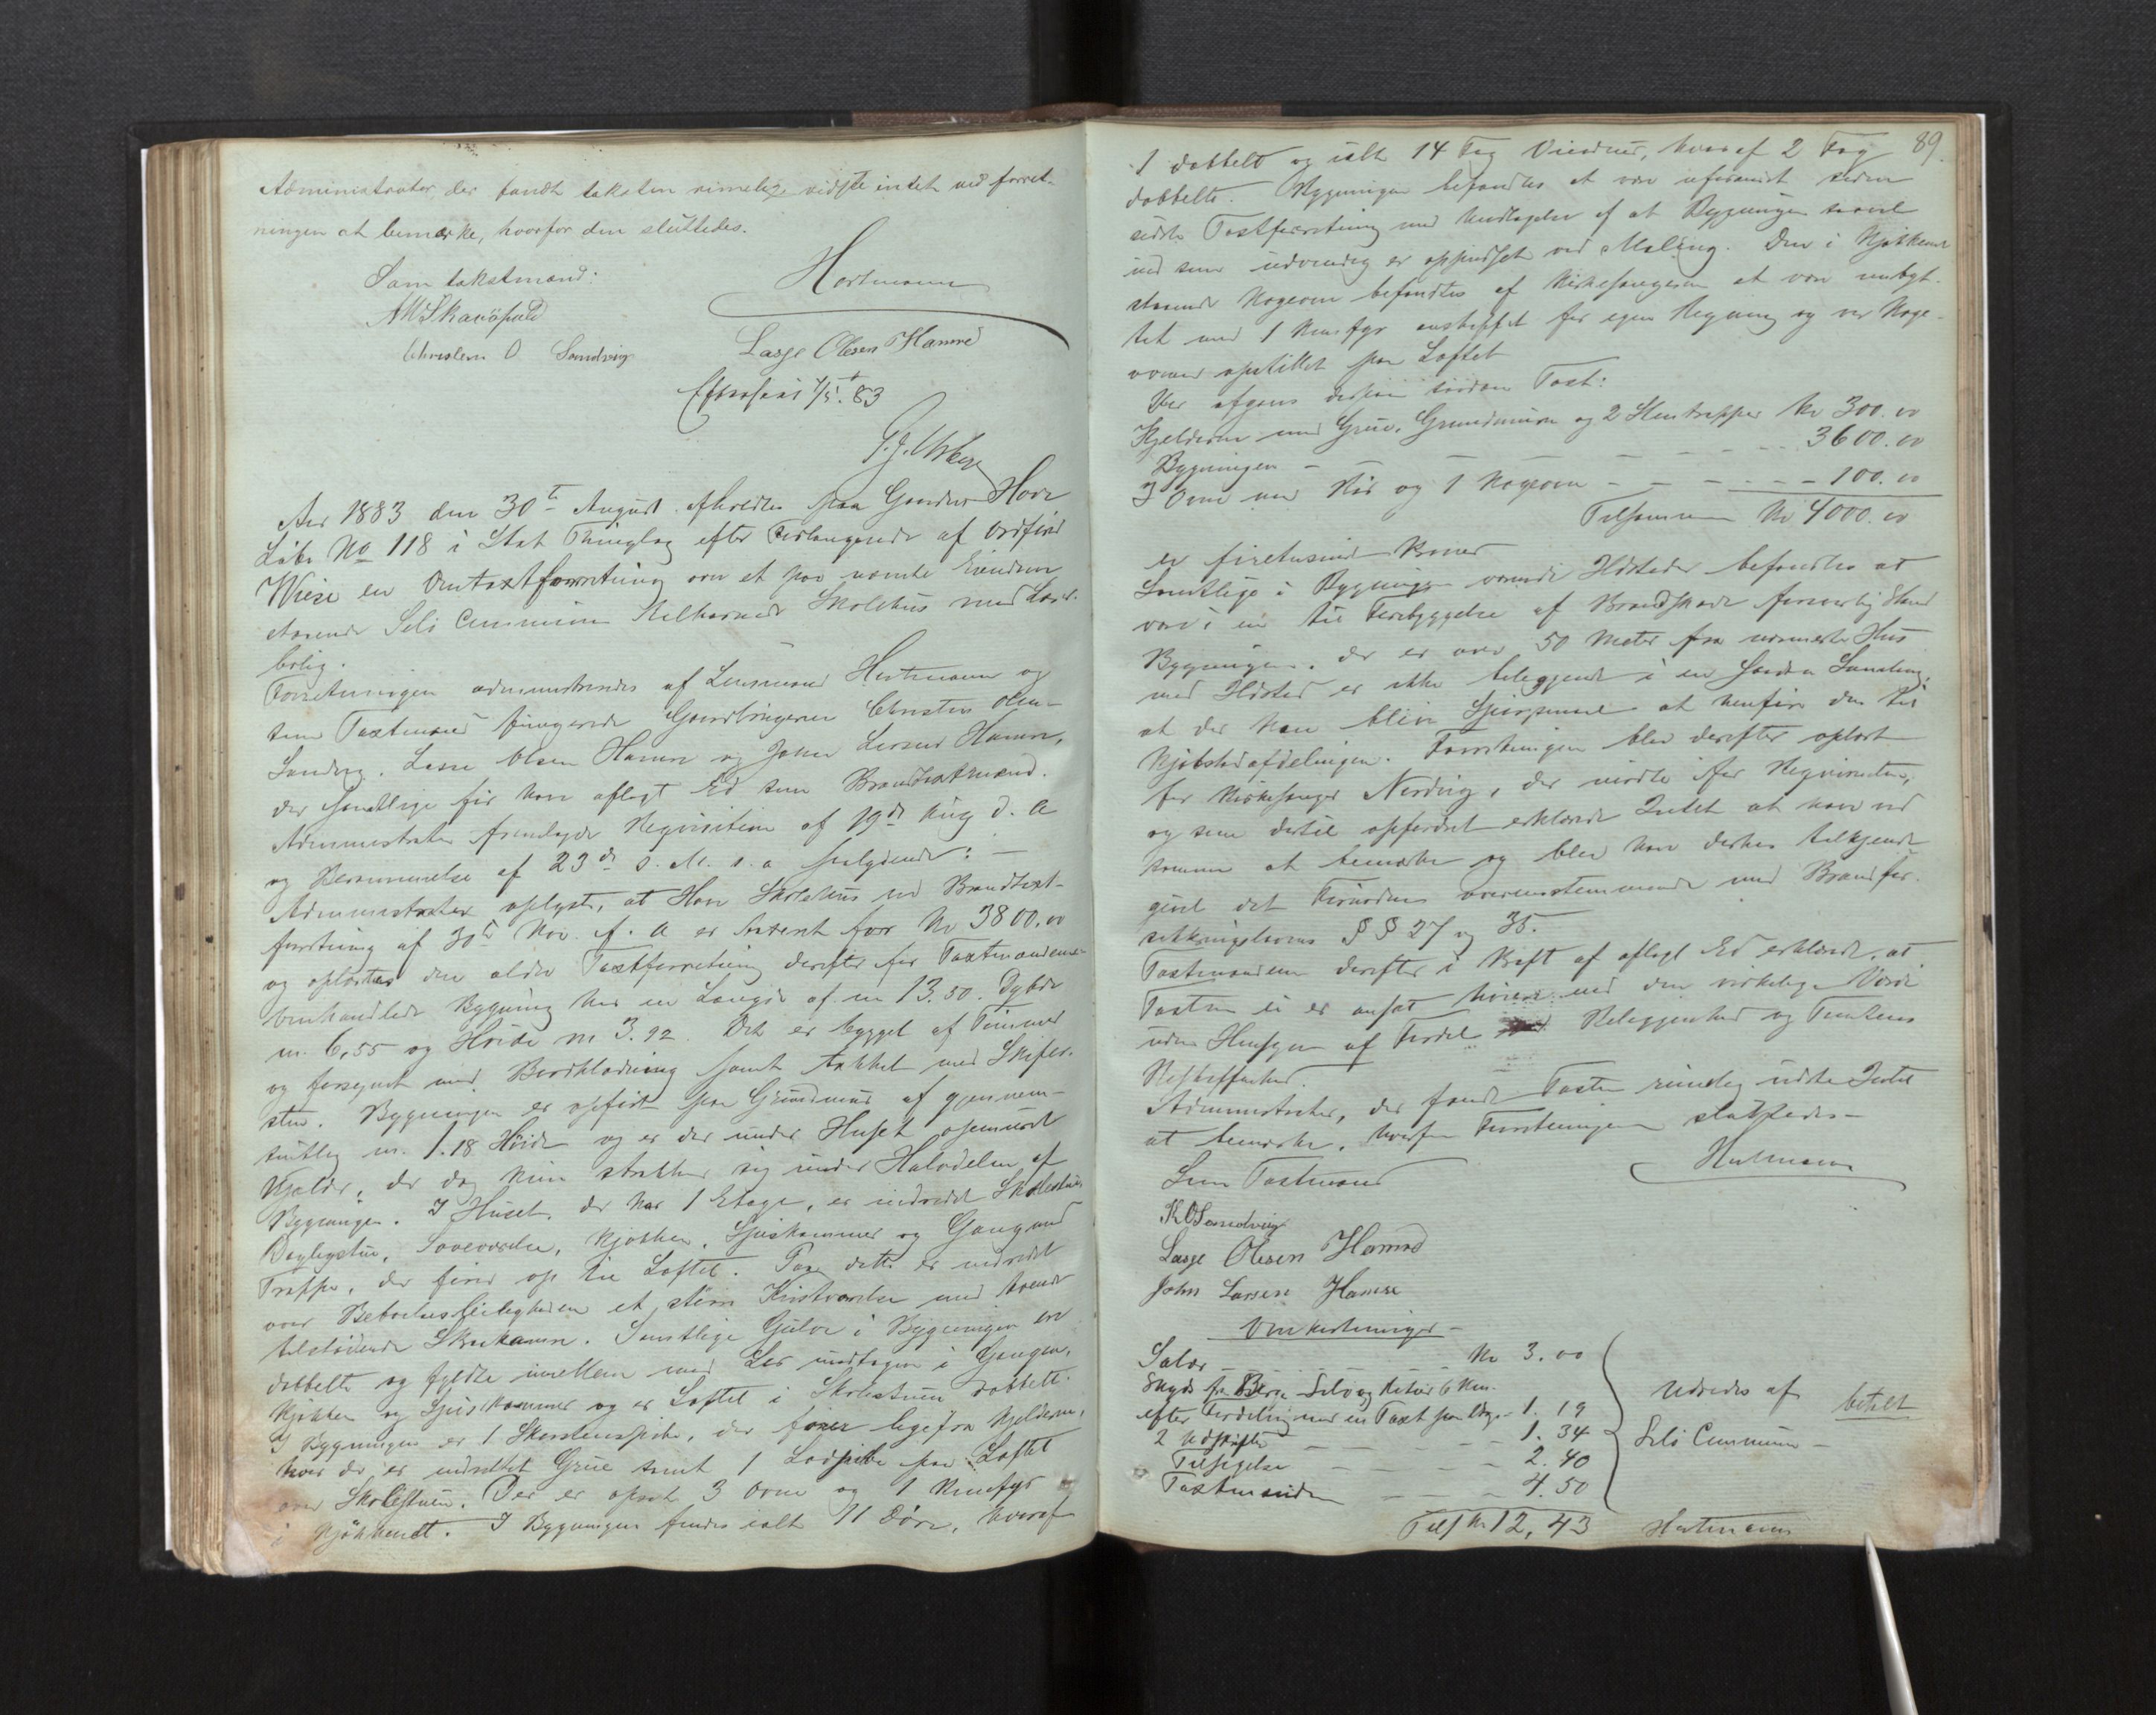 Administrator der fandt taksten rimelige vidste intet ved forret-
ningen at bemærke, hvorfor den sluttedes.
Som takstmænd:
Hartmann
Christen O. Sandvig
Lasse Olesen Hamre
83
Aar 1883 den 30te August afholdtes paa Gaarden Hove
Løbe No 118 i Thinglag efter Forlangende af Ordfører
Wiese en Omtaxtforretning over et paa nævnte Eiendom
staaende Selø Communes Skolehus med Lærer-
bolig.
Forretningen administreredes af Lensmand Hartmann og
som Taxtmænd fungerede Gaardbrugerne Christen Olsen
Sandvig, Lasse Olsen Hamre og Johan Larsen Hamre,
der samtlige før have aflagt Ed som Brandtaxtmænd.
Administrator fremlagde Requisition af 19de Aug d. A
og Berammelse af 23de s. M. s. a saalydende: —
Administrator oplyste, at Hove Skolehus ved Brandtaxt-
forretning af 30te Nov. f. A er taxeret for Kr 3800.00
og oplæstes den ældre Taxtforretning derefter for Taxtmændene
Omhandlede Bygning har en Længde af m 13.50. Dybde
m. 6,55 og Høide m 3.92. Det er bygget af Tømmer
og forsynet med Bordklædning samt tækket med Skifer-
sten. Bygningen er opført paa Grundmur af gjennem-
snitlig m. 1.18 Høide og er der under Huset opmuret
Kjælder, der dog kun strækker sig under Halvdelen af
Bygningen. I Huset, der har 1 Etage, er indredet Skolestue,
Dagligstue, Soveværelse, Kjøkken, Spiskammer og Gang med
Trappe, der fører op til Loftet. Paa dette er indredet
over Beboelsesleiligheden et større Kvistværelse med tvende
tilstødende Skraakamre. Samtlige Gulve i Bygningen ere
dobbelte og fyldte imellem med Ler undtagen i Gangen,
Kjøkken og Spiskammer og er Loftet i Skolestuen dobbelt.
I Bygningen er 1 Skorstenspibe, der fører lige fra Kjelderen,
hvor der er indrettet Grue samt 1 Lodpibe paa Loftet
over Skolestuen. Der er opsat 3 Ovne og 1 Komfyr
i Kjøkkenet. I Bygningen findes ialt 11 Døre, hvoraf
89.
1 dobbelt og ialt 14 Fag Vinduer, hvoraf 2 Fag
dobbelte. Bygningen befandtes at være uforandret siden
sidste Taxtforretning med Undtagelse af at Bygningen saavel
ind som udvendig er oppudset ved Maling. Den i Kjøkkenet
staaende Kogeovn befandtes af Kirkesangeren at være ombyt-
tet med 1 Komfyr anskaffet for egen Regning og var Koge-
ovnen opstillet paa Loftet
Der afgaves derpaa saadan Taxt:
Kjelderen med Grue, Grundmuren og 2 Stentrapper Kr 300.00
Bygningen — — — — — — 3600.00
3 Ovne med Rør og 1 Kogeovn — — — — — 100.00
Tilsammen Kr 4000.00
er firetusind Kroner
Samtlige i Bygningen værende Ildsteder befandtes at
være i en til Forebyggelse af Brandskade forsvarlig Stand
Bygningen, der er over 50 Meter fra nærmeste Hus
med Ildsted er ikke beliggende i en saadan Samling,
at der kan blive Spørgsmaal at henføre den til
Kjøbstadafdelingen. Forretningen blev derefter oplæst
for Kirkesanger Nordvig, der mødte for Requirenten,
og som dertil opfordret erklærede Intet at have ved
samme at bemærke og blev han derhos tilkjende-
givet det Fornødne overensstemmende med Brandfor-
sikkringslovens §§ 27 og 35.
Taxtmændene derefter i Kraft af aflagt Ed erklærede, at
Taxten ei er ansat høiere end den virkelige Værdi
uden Hensyn af Fordel Beliggenhed og Tomtens
Beskaffenhed.
Administrator, der fandt Taxten rimelig vidste Intet
at bemærke, hvorfor Forretningen sluttedes —
Hartmann
Som Taxtmænd
K O Sandvig
Lasse Olesen Hamre
John Larsen Hamre
Omkostninger —
Salær — — — — — Kr 3.00
Skyds fra Berge Selø og Retur 6 Km.
efter Fordeling med en Taxt paa 1. 19
2 Udskrifter — — — 1. 34
Tilsigelse — — — — 2. 40
Taxtmænden — — — 4. 50
Tils Kr 12,43
Udredes af
Selø Commune —
betalt
Hartmann